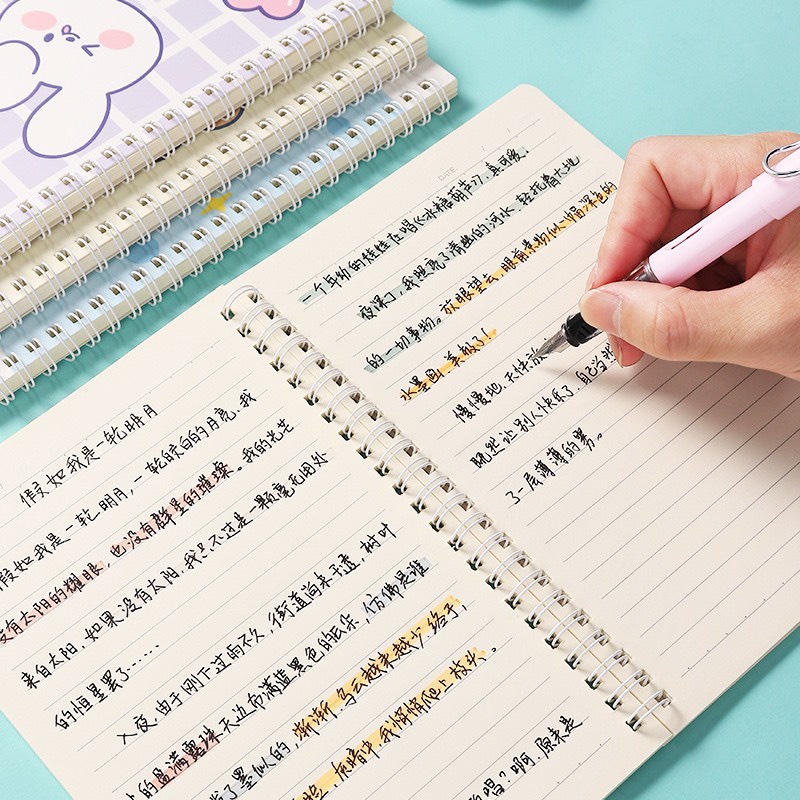 假如我是一轮明月
假如我是一轮明月,一轮皎白的月亮,我
没有太阳的耀眼,也没有群星的璀璨。我的光芒
来自太阳,如果没有太阳,我只不过是一颗毫无用处
的恒星罢了……
入夜,由于刚下过雨不久,街道尚未干透,树叶
的盈满露珠,天边布满蓝黑色的云朵,仿佛是谁
了墨似的,渐渐,乌云越来越少,终于,
脸,灰暗中,我悄悄爬上枝头。
唱?啊,原来是
DATE / /
一个年幼的娃娃在唱《冰糖葫芦》,真可爱。
夜深了,我照亮了清幽的河水,轻抚着大地
的一切事物。放眼望去,眼前景物似一幅深色的
水墨画,美极了!
慢慢地,天快放
既然让别人快乐了,自己当
了一层薄薄的雾。